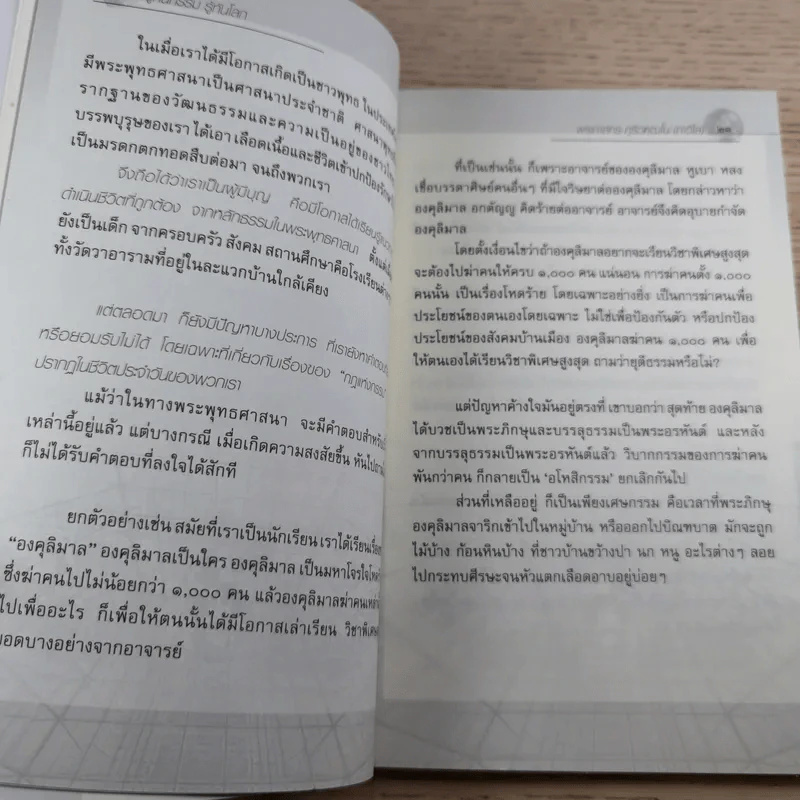 รู้ทันโลก
ในเมื่อเราได้มีโอกาสเกิดเป็นชาวพุทธ
มีพระพุทธศาสนาเป็นศาสนาประจำชาติ
รากฐานของวัฒนธรรมและความเป็นอยู่ของชาวไทย
บรรพบุรุษของเรา ได้เอา เลือดเนื้อและชีวิตเข้าปกป้องรักษา
เป็นมรดกตกทอดสืบต่อมา จนถึงพวกเรา
จึงถือได้ว่าเราเป็นผู้มีบุญ คือมีโอกาสได้เรียนรู้
ดำเนินชีวิตที่ถูกต้อง จากหลักธรรมในพระพุทธศาสนา ตั้งแต่
ยังเป็นเด็ก จากครอบครัว สังคม สถานศึกษาคือโรงเรียน
ทั้งวัดวาอารามที่อยู่ในละแวกบ้านใกล้เคียง
แต่ตลอดมา ก็ยังมีปัญหาบางประการ ที่เรายังหา
หรือยอมรับไม่ได้ โดยเฉพาะที่เกี่ยวกับเรื่องของ "กฎแห่งกรรม"
ปรากฏในชีวิตประจำวันของพวกเรา
แม้ว่าในทางพระพุทธศาสนา จะมีคำตอบสำหรับ
เหล่านี้อยู่แล้ว แต่บางกรณี เมื่อเกิดความสงสัยขึ้น หันไป
ก็ไม่ได้รับคำตอบที่ลงใจได้สักที
ยกตัวอย่างเช่น สมัยที่เราเป็นนักเรียน เราได้เรียนเรื่อง
"องคุลิมาล" องคุลิมาลเป็นใคร องคุลิมาล เป็นมหาโจรใจโหด
ซึ่งฆ่าคนไปไม่น้อยกว่า ๑,๐๐๐ คน แล้วองคุลิมาลฆ่าคน
ไปเพื่ออะไร ก็เพื่อให้ตนนั้นได้มีโอกาสเล่าเรียน วิชาพิเศษ
ยอดบางอย่างจากอาจารย์
ที่เป็นเช่นนั้น ก็เพราะอาจารย์ขององคุลิมาล หูเบา หลง
เชื่อบรรดาศิษย์คนอื่นๆ ที่มีใจริษยาต่อองคุลิมาล โดยกล่าวหาว่า
องคุลิมาล อกตัญญู คิดร้ายต่ออาจารย์ อาจารย์จึงคิดอุบายกำจัด
องคุลิมาล
โดยตั้งเงื่อนไขว่าถ้าองคุลิมาลอยากจะเรียนวิชาพิเศษสูงสุด
จะต้องไปฆ่าคนให้ครบ ๑,๐๐๐ คน แน่นอน การฆ่าคนตั้ง ๑,๐๐๐
คนนั้น เป็นเรื่องโหดร้าย โดยเฉพาะอย่างยิ่ง เป็นการฆ่าคนเพื่อ
ประโยชน์ของตนเองโดยเฉพาะ ไม่ใช่เพื่อป้องกันตัว หรือปกป้อง
ประโยชน์ของสังคมบ้านเมือง องคุลิมาลฆ่าคน ๑,๐๐๐ คน เพื่อ
ให้ตนเองได้เรียนวิชาพิเศษสูงสุด ถามว่ายุติธรรมหรือไม่?
แต่ปัญหาค้างใจมันอยู่ตรงที่ เขาบอกว่า สุดท้าย องคุลิมาล
ได้บวชเป็นพระภิกษุและบรรลุธรรมเป็นพระอรหันต์ และหลัง
จากบรรลุธรรมเป็นพระอรหันต์แล้ว วิบากกรรมของการฆ่าคน
พันกว่าคน ก็กลายเป็น 'อโหสิกรรม' ยกเลิกกันไป
ส่วนที่เหลืออยู่ ก็เป็นเพียงเศษกรรม คือเวลาที่พระภิกษุ
องคุลิมาลจาริกเข้าไปในหมู่บ้าน หรือออกไปบิณฑบาต มักจะถูก
ไม้บ้าง ก้อนหินบ้าง ที่ชาวบ้านขว้างปา นก หนู อะไรต่างๆ ลอย
ไปกระทบศีรษะจนหัวแตกเลือดอาบอยู่บ่อยๆ